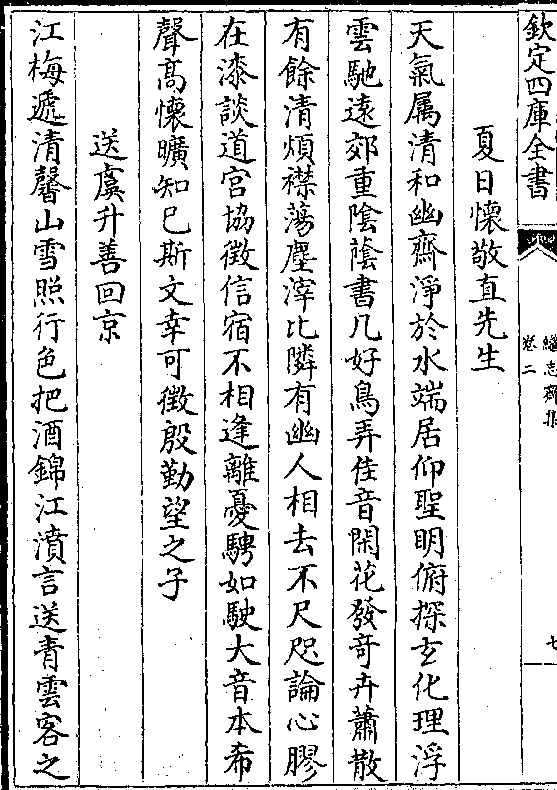 欽定四庫全書
繼志齋集
卷二
七
夏日懷敬直先生
天氣屬清和幽齋淨於水端居仰聖明俯探玄化理浮
雲馳遠郊重陰蔭書几好鳥弄佳音閒花發奇卉蕭散
有餘清煩襟蕩塵滓比隣有幽人相去不尺咫論心膠
在漆談道宮協徵信宿不相逢離憂騁如駛大音本希
聲髙懷曠知已斯文幸可徵殷勤望之子
送虞升善回京
江梅遞清馨山雪照行色把酒錦江濆言送青雲客之